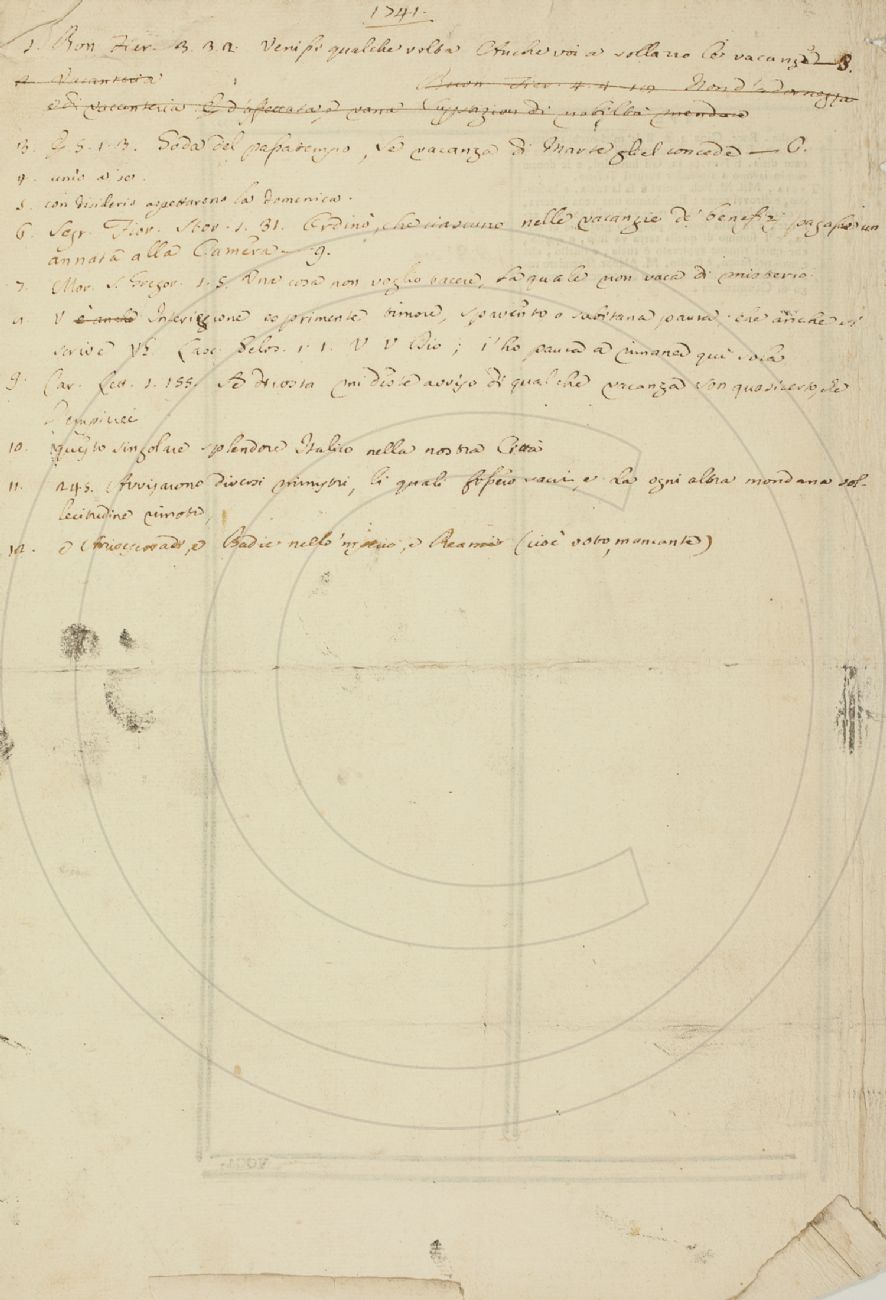 1741.
1. Bon Fier. 3. 3. 2. Venissi qualche volta Anche voi a sollazzo le vacanze — 8.
2. Vacanteria Buon Fier. 4. 4. Non
e di vacanteria E d'affettata, e vana di nobiltà
3. E 5. 1. 3. Goda del passatempo, se vacanza di Marte gliel concede — 6.
4. unio a se.
5. con disiderio aspettarono la Domenica.
6. Segr. Fior. Stor. 1. 31. Ordinò, che ciascuno nelle vacanzie de' benefizj pagasse un
annata alla Camera — 9.
7. Mor. S. Gregor. 1. 5. Una cosa non voglio tacere, la quale non vaca di misterio.
8. V è anche Interiezione esprimente timore, spavento o subitana paura che anche si
scrive Vh. Lasc. Gelos. 1. 1. V V Dio; i' ho paura a rimaner qui sola
9. Car. Lett. 1. 155. Se di costà mi deste avviso di qualche vacanza son quasi certo, che
l'empierei
10. questo singolare splendore Italico nella nostra Città
11. 243. Avvisarono diversi ministri, li quali fossero vacui, e da ogni altra mondana sol-
lecitudine rimoti,
12. e Arcivescovadi, e Badie nello 'mperio, e Reami (cioè voto, mancante)